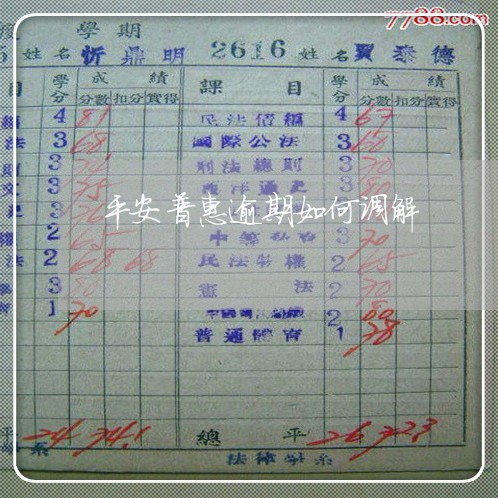 7788.com
學期
姓名 忻鼎明 2616 姓名 賈泰德
目 學分 成績 課目 學分 成績
分數 扣分 實得 分數 扣分 實得
4 81 民法債編 4 67
法 3 68 國際公法 3 60
3 刑法總則 3 70
3 75 西洋通史 3 80
3
平安普惠逾期如何调解
2 65 3 70
法 2 68 68 民法物權 2 65
3 80 憲法 2 70
1 70 2 80
普通體育 1 78
平 24 74.1 總平 26 72.3
系 法律學系